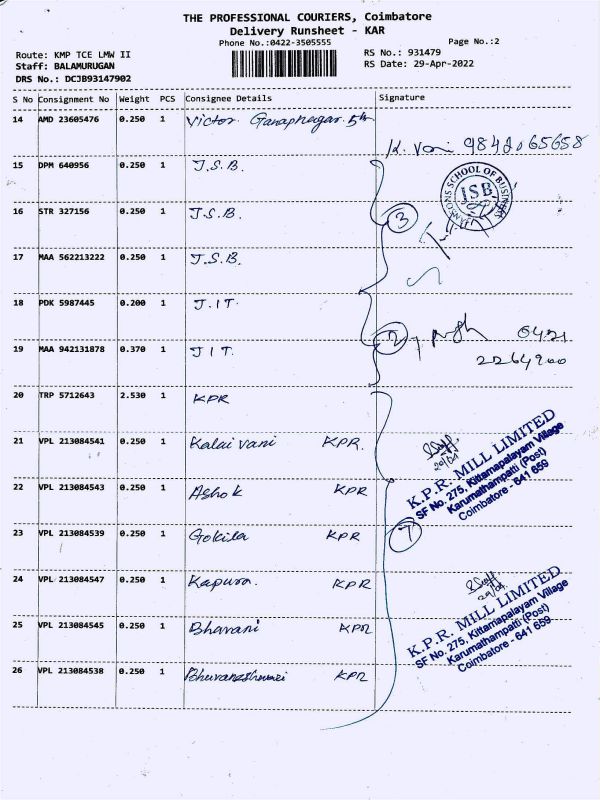 THE PROFESSIONAL COURIERS, Coimbatore
Delivery Runsheet - KAR
Phone No.:0422-3505555
Page No.:2
Route: KMP TCE LMW II
RS No.: 931479
Staff: BALAMURUGAN
RS Date: 29-Apr-2022
DRS No.: DCJB93147902
S No Consignment No Weight PCS Consignee Details Signature
14 AMD 23605476 0.250 1 Victor Ganapnagar 5th
9842065658
15 DPM 640956 0.250 1 J.S.B.
SCHOOL OF BUSINESS
JSB
16 STR 327156 0.250 1 J.S.B. 3
17 MAA 562213222 0.250 1 J.S.B.
18 PDK 5987445 0.200 1 J.IT.
2 0421
19 MAA 942131878 0.370 1 JIT.
2264900
20 TRP 5712643 2.530 1 KPR
21 VPL 213084541 0.250 1 Kalaivani KPR.
29/04
K.P.R. MILL LIMITED
SF No. 275, Kittampalayam Village
Karumathampatti (Post)
Coimbatore - 641 659
22 VPL 213084543 0.250 1 Ashok KPR
23 VPL 213084539 0.250 1 Gokila KPR 7
24 VPL 213084547 0.250 1 Kapura. KPR
29/04
K.P.R. MILL LIMITED
SF No. 275, Kittampalayam Village
Karumathampatti (Post)
Coimbatore - 641 659
25 VPL 213084545 0.250 1 Bhavani KPR
26 VPL 213084538 0.250 1 Bhuvaneshwari KPR